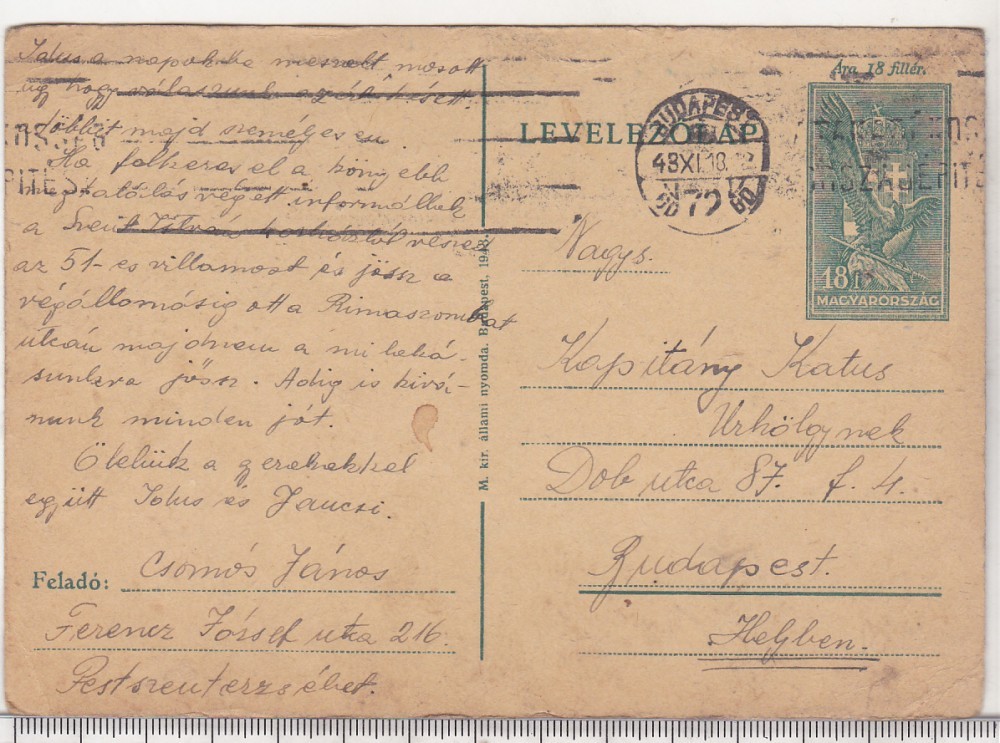 Idus a napokba mesélt mosott
úgy hogy válaszunk azért késett.
Többit majd személyesen.
Ha felkeres el a könyebb
eltalálás végett informállak
a Szent István kórháztól veszed
az 51-es villamost és jössz a
végállomásig ott a Rimaszombat
utcán majdnem a mi laká-
sunkra jössz. Adig is kivá-
nunk minden jót.
Ölelünk a gyerekekkel
együtt Idus és Jancsi.
Feladó: Csomós János
Ferencz József utca 216.
Pestszenterzsébet.
M. kir. állami nyomda. Budapest, 1943.
Ára 18 fillér.
LEVELEZŐLAP
BUDAPEST
43 XI. 18. 12
72
18 f
MAGYARORSZÁG
Nagys.
Kapitány Katus
Urhölgynek
Dob utca 87. f. 4.
Budapest.
Helyben.